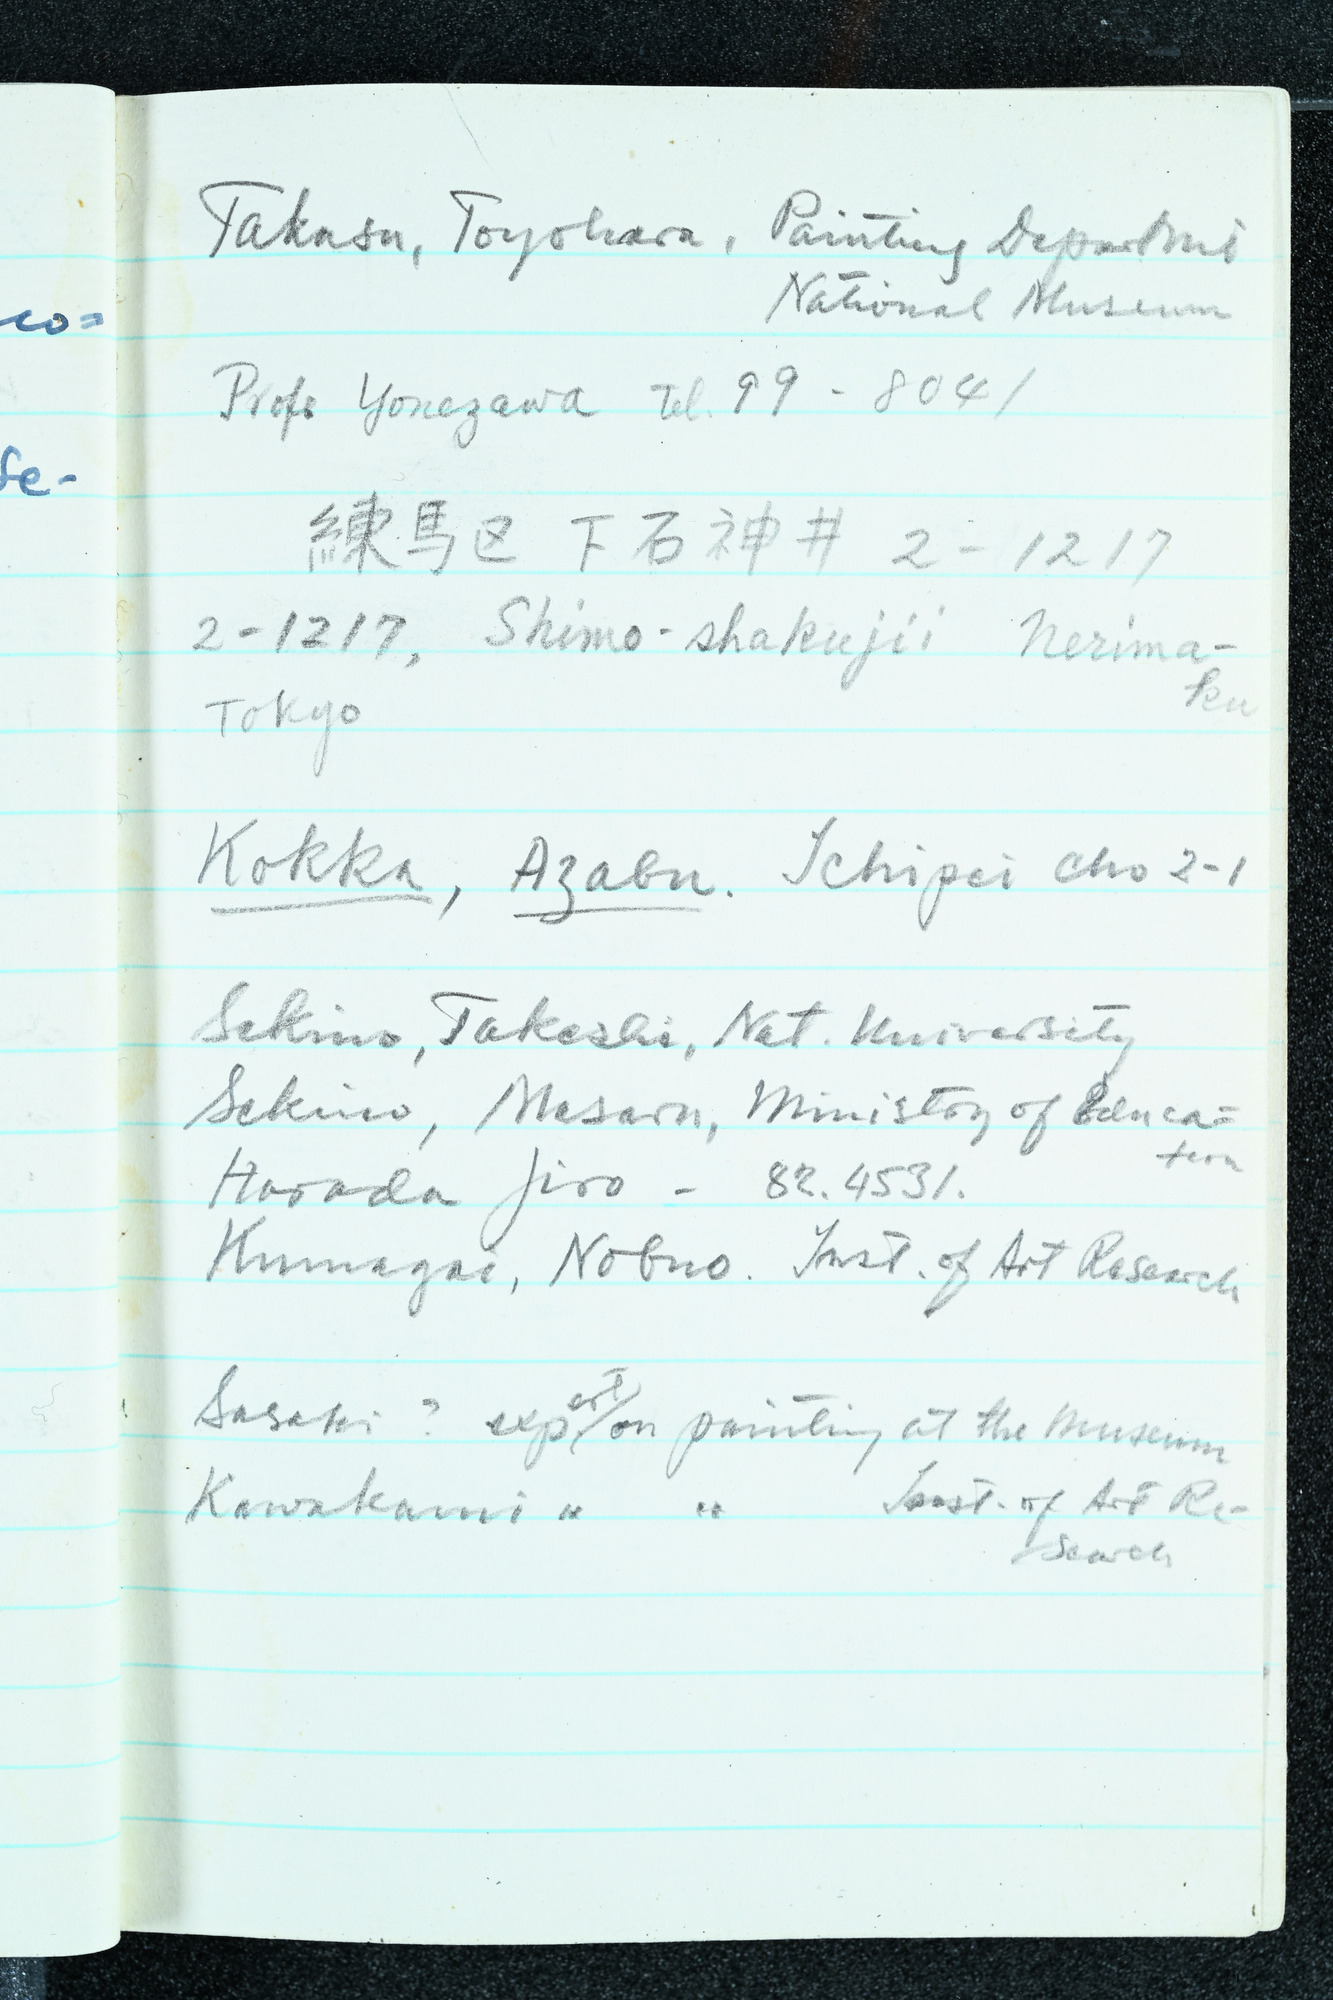 co=
fe-
Takasu, Toyohara, Painting Department
National Museum
Prof. Yonezawa Tel. 99-8041
練馬区 下石神井 2-1217
2-1217, Shimo-shakujii Nerima-
ku
Tokyo
Kokka, Azabu. Ichipei cho 2-1
Sekino, Takeshi, Nat. University
Sekino, Masaru, Ministry of Educa=
tion
Harada Jiro - 82.4531.
Kumagai, Nobuo. Inst. of Art Research
Sasaki ? expert on painting at the Museum
Kawakami " " Inst. of Art Re-
search